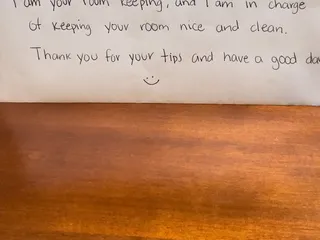 I am your room keeping, and I am in charge
of keeping your room nice and clean.
Thank you for your tips and have a good day